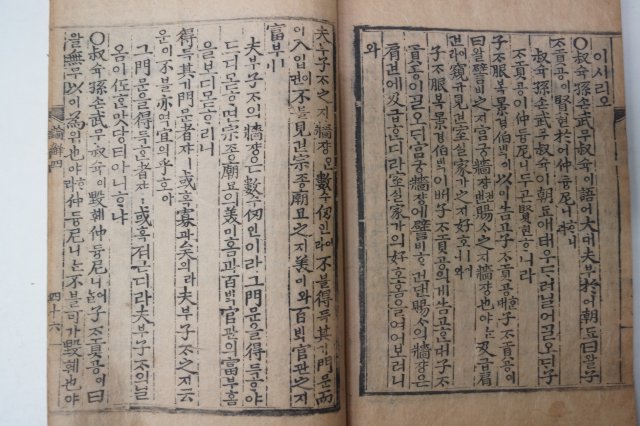 이시리오
○叔슉孫손武무叔슉이語어大대夫부於어朝됴曰왈子
ᄌᆞ貢공이賢현於어仲듕尼니ᄒᆞ니라
叔슉孫손武무叔슉이朝됴애태우ᄃᆞ려닐어ᄀᆞᆯ오ᄃᆡ子
ᄌᆞ貢공이仲듕尼니두곤賢현ᄒᆞ니라
子ᄌᆞ服복景경伯ᄇᆡᆨ이以이告고子ᄌᆞ貢공ᄒᆞᆫ대子ᄌᆞ貢공이
曰왈譬비之지宮궁牆쟝컨댄賜ᄉᆞ之지牆쟝也야ᄂᆞᆫ及급肩
견이라窺규見견室실家가之지好호ㅣ어니와
子ᄌᆞ服복景경伯ᄇᆡᆨ이ᄡᅥ子ᄌᆞ貢공의게告고ᄒᆞᆫ대子ᄌᆞ
貢공이ᄀᆞᆯ오ᄃᆡ宮궁牆쟝에譬비컨댄賜ᄉᆞ의牆쟝은
肩견에及급ᄒᆞᆫ디라室실家가의好호홈을여어보려니
와
夫부子ᄌᆞ之지牆쟝은數수仞인이라不블得득其기門문而
이入입이면不블見견宗종廟묘之지美미와百ᄇᆡᆨ官관之지
富부ㅣ니
夫부子ᄌᆞ의牆쟝은數수仞인이라그門문을得득ᄒᆞ야
드디몯ᄒᆞ면宗종廟묘의美미홈과百ᄇᆡᆨ官관의富부홈
을보디몯ᄒᆞ리니
得득其기門문者쟈ㅣ或혹寡과矣의라夫부子ᄌᆞ之지云
운이不블亦역宜의乎호아
그門문을得득ᄒᆞᆫ者쟈ㅣ或혹젹은디라夫부子ᄌᆞ의닐
옴이ᄯᅩᄒᆞᆫ맛당티아니ᄒᆞ냐
○叔슉孫손武무叔슉이毁훼仲듕尼니어ᄂᆞᆯ子ᄌᆞ貢공이曰
왈無무以이爲위也야ᄒᆞ라仲듕尼니ᄂᆞᆫ不블可가毁훼也야
論解四
四十六